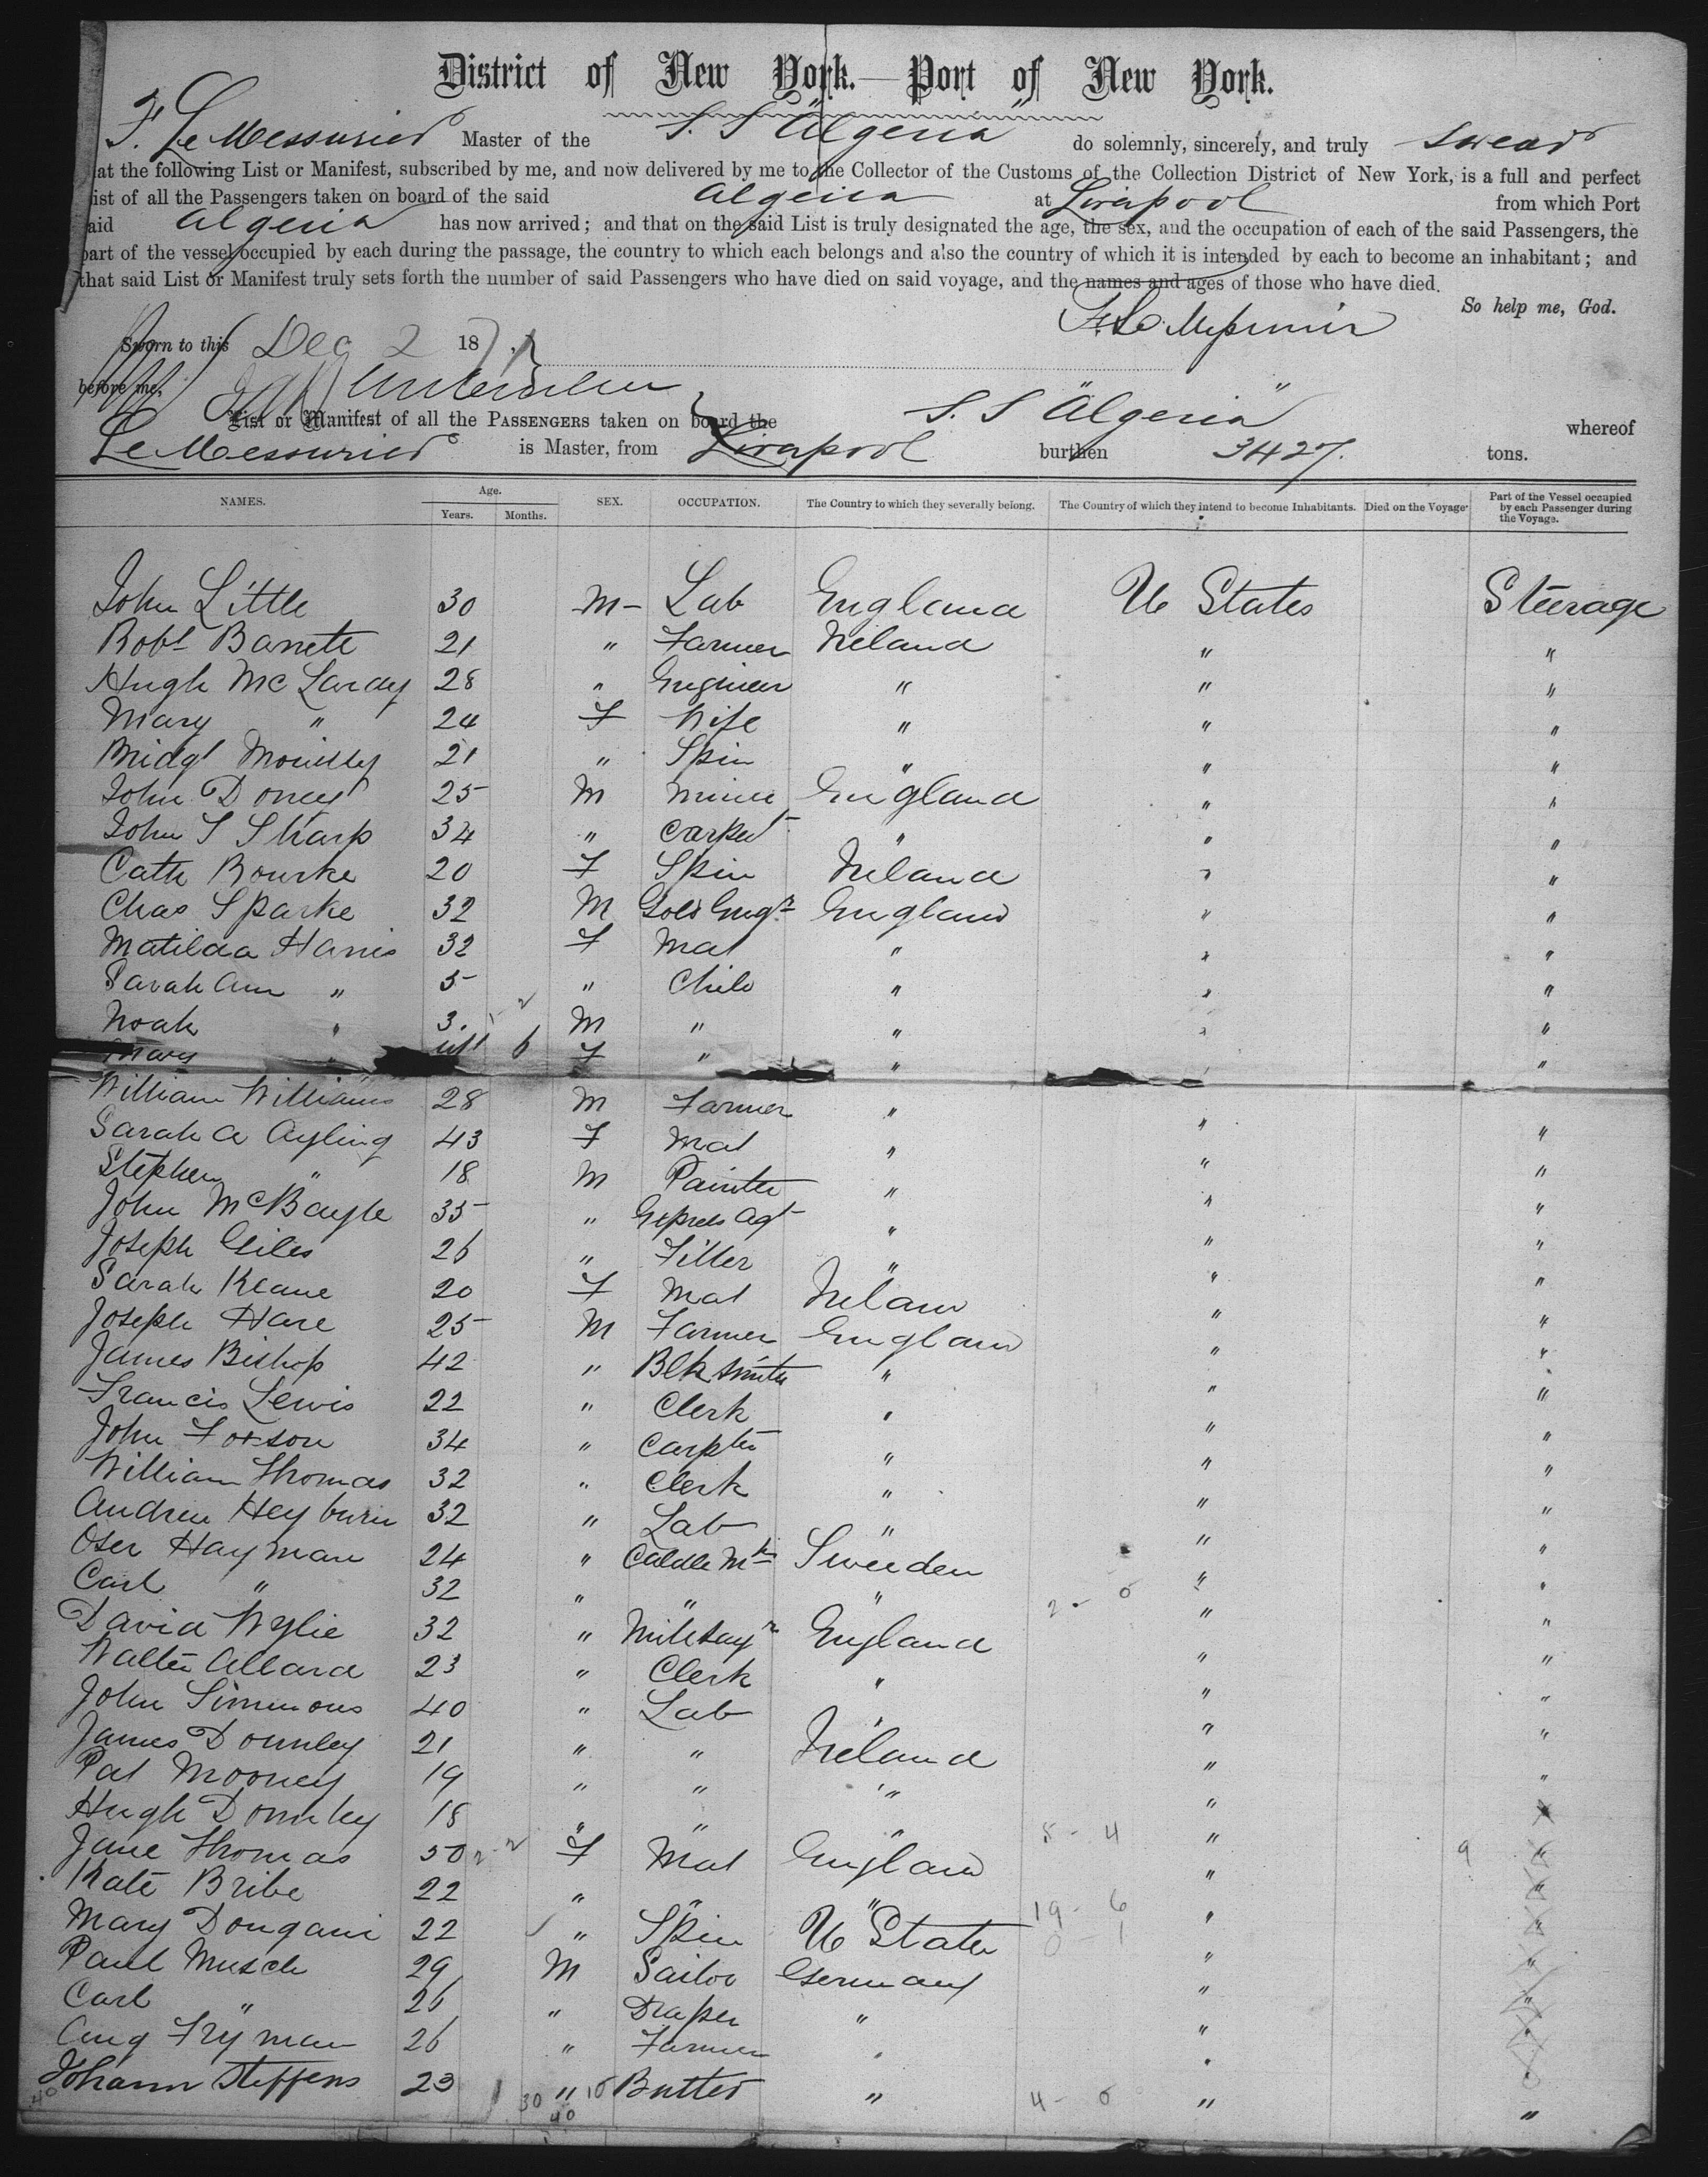 District of New York.—Port of New York.
F. Le Messurier Master of the S. S "Algeria" do solemnly, sincerely, and truly swear
at the following List or Manifest, subscribed by me, and now delivered by me to the Collector of the Customs of the Collection District of New York, is a full and perfect
ist of all the Passengers taken on board of the said Algeria at Liverpool from which Port
aid Algeria has now arrived; and that on the said List is truly designated the age, the sex, and the occupation of each of the said Passengers, the
part of the vessel occupied by each during the passage, the country to which each belongs and also the country of which it is intended by each to become an inhabitant; and
that said List or Manifest truly sets forth the number of said Passengers who have died on said voyage, and the names and ages of those who have died.
So help me, God.
F. Le Messurier
Sworn to this Dec 2 187
before me,
List or Manifest of all the PASSENGERS taken on board the S. S "Algeria" whereof
Le Messurier is Master, from Liverpool burthen 3427. tons.
NAMES. Age. Years. Months. SEX. OCCUPATION. The Country to which they severally belong. The Country of which they intend to become Inhabitants. Died on the Voyage. Part of the Vessel occupied by each Passenger during the Voyage.
John Little 30 M Lab England U States Steerage
Robt Barrett 21 " Farmer Ireland " "
Hugh McLardy 28 " Engineer " " "
Mary " 24 F Wife " " "
Bridgt 21 " Spin " " "
John Doney 25 M Miner England " "
John S Sharp 34 " Carpet " " "
Cath Bourke 20 F Spin Ireland " "
Chas Sparke 32 M Engr England " "
Matilda Harris 32 F Mat " " "
Sarah Ann " 5 " Child " " "
Noah " 3. M " " " "
Mary " Inft 6 F " " " "
William Williams 28 M Farmer " " "
Sarah A Ayling 43 F Mat " " "
Stephen " 18 M Painter " " "
John McBayle 35 " Express Agt " " "
Joseph Giles 26 " Fitter " " "
Sarah Keane 20 F Mat Ireland " "
Joseph Hare 25 M Farmer England " "
James Bishop 42 " Blk smith " " "
Francis Lewis 22 " Clerk " " "
John Foxson 34 " Carptr " " "
William Thomas 32 " Clerk " " "
Andrew Heyburn 32 " Lab " " "
Oser Hayman 24 " Mk Sweeden " "
Carl " 32 " " " " "
David Wylie 32 " England " "
Walter Allard 23 " Clerk " " "
John Simmons 40 " Lab " " "
James Donnley 21 " " Ireland " "
Pat Mooney 19 " " " " "
Hugh Donnley 18 " " " " "
Jane Thomas 50 F Mat England " "
Kate Bribe 22 " " " " "
Mary Dougani 22 " Spin U States " "
Paul Musch 29 M Sailor Germany " "
Carl " 26 " Draper " " "
Aug Fryman 26 " Farmer " " "
Johann Steffens 23 " Butter " " "